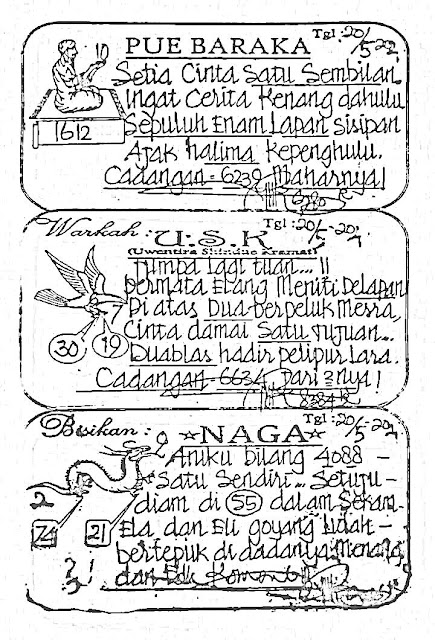 PUE BARAKA
Tgl: 20/5-22.
Setia Cinta Satu Sembilan.
Ingat Cerita Kenang dahulu
1612
Sepuluh Enam Lapan sisipan
Ajak halima Kepenghulu.
Cadangan-6239 Maharnya!
Warkah:
U.S.K
Tgl: 20/5-20
(Uwentira Shindue Kramat)
Jumpa lagi tuan... !!
bermata Elang Meniti Delapan
Di atas Dua-berpeluk Mesra,
Cinta damai Satu Tujuan...
30
19
Duablas hadir pelipur lara.
Cadangan-6634 Dari 2nya!
8284
Bisikan:
☆NAGA☆
Tgl: 20/5-20
9
Anuku bilang 4088 –
Satu Sendiri... Setuju –
2
diam di 55 dalam Sekam.
74
21
Ela dan Eli goyang lidah –
bertepuk di dadanya Menang
dan